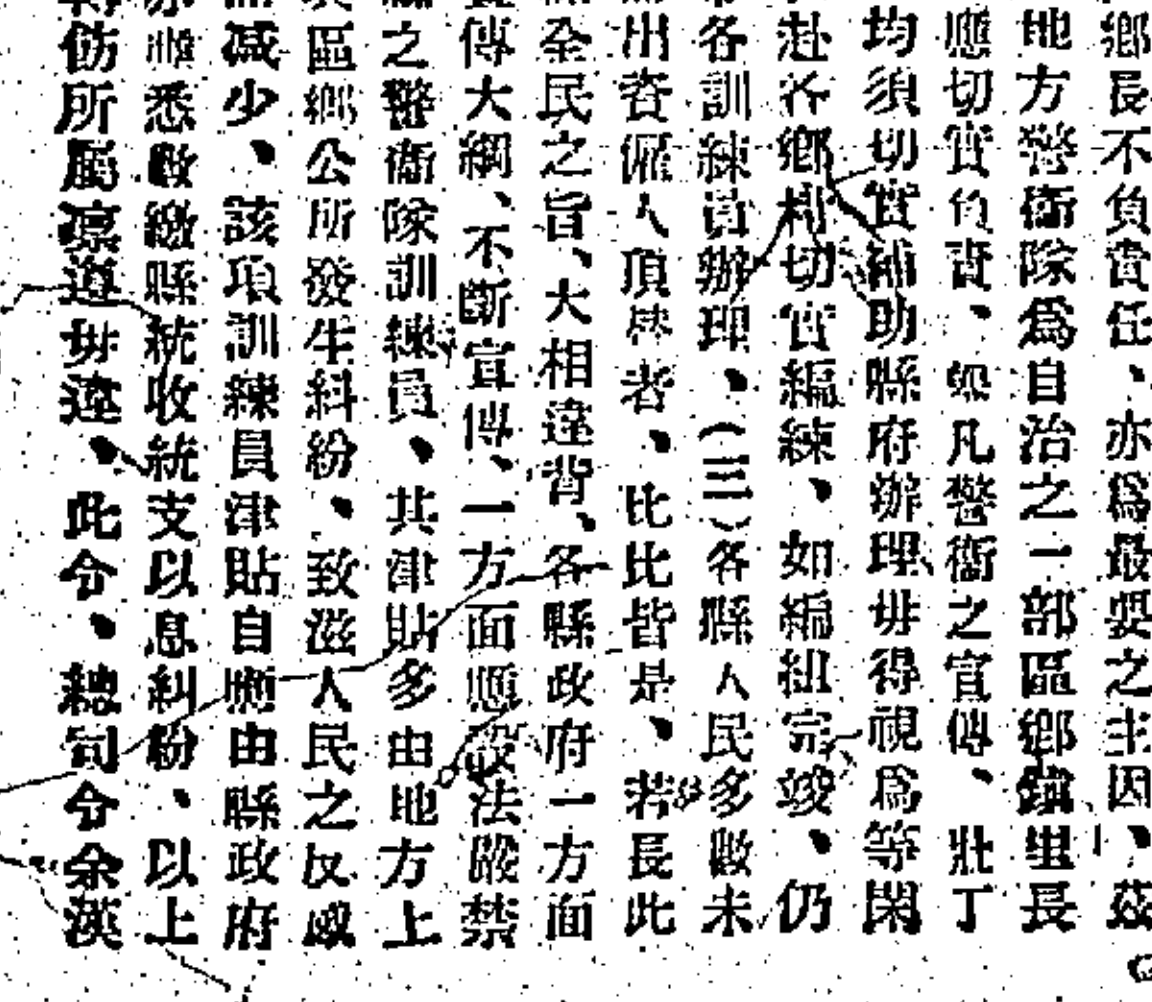 鄉長不負責任、亦爲最要之主因、茲
地方警衞隊爲自治之一部區鄉鎮里長
應切實負責、如凡警衞之宣傳、壯丁
均須切實補助縣府辦理毋得視爲等閑
赴各鄉村切實編練、如編組完竣、仍
各訓練員辦理、(三)各縣人民多數未
出資僱人頂替者、比比皆是、若長此
全民之旨、大相違背、各縣政府一方面
傳大綱、不斷宣傳、一方面應設法嚴禁
之警衞隊訓練員、其津貼多由地方上
區鄉公所發生糾紛、致滋人民之反感
減少、該項訓練員津貼自應由縣政府
悉數繳縣統收統支以息糾紛、以上
飭所屬凛遵毋違、此令、總司令余漢